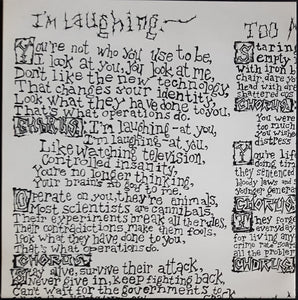 I'm Laughing
You're not who you use to be,
I look at you, you look at me,
Don't like the new technology,
That changes your identity,
Look what they have done to you,
That's what operations do.
CHORUS I'm laughing - at you,
I'm laughing - at you,
Like watching television,
Controlled insanity,
You're no longer thinking,
Your brains
Operate on you, they're animals,
Most scientists are cannibals,
Their experiments break all the rules,
Their contradictions make them fools,
Look what they have done to you,
That's what operations do.
CHORUS
Stay alive, survive their attack,
Never give in, keep fighting back,
Can't wait for the governments
Too M
Staring
empty
With iron b
chair, dare yo
Head with dre
shattered dr
CHORUS
You were
too
you wish
distress
Your life
doing tim
they sentenced
bloody laws and
younger gener
CHORUS
They forge
everyday
for living any
crime rate soar
all the proble
CHORUS